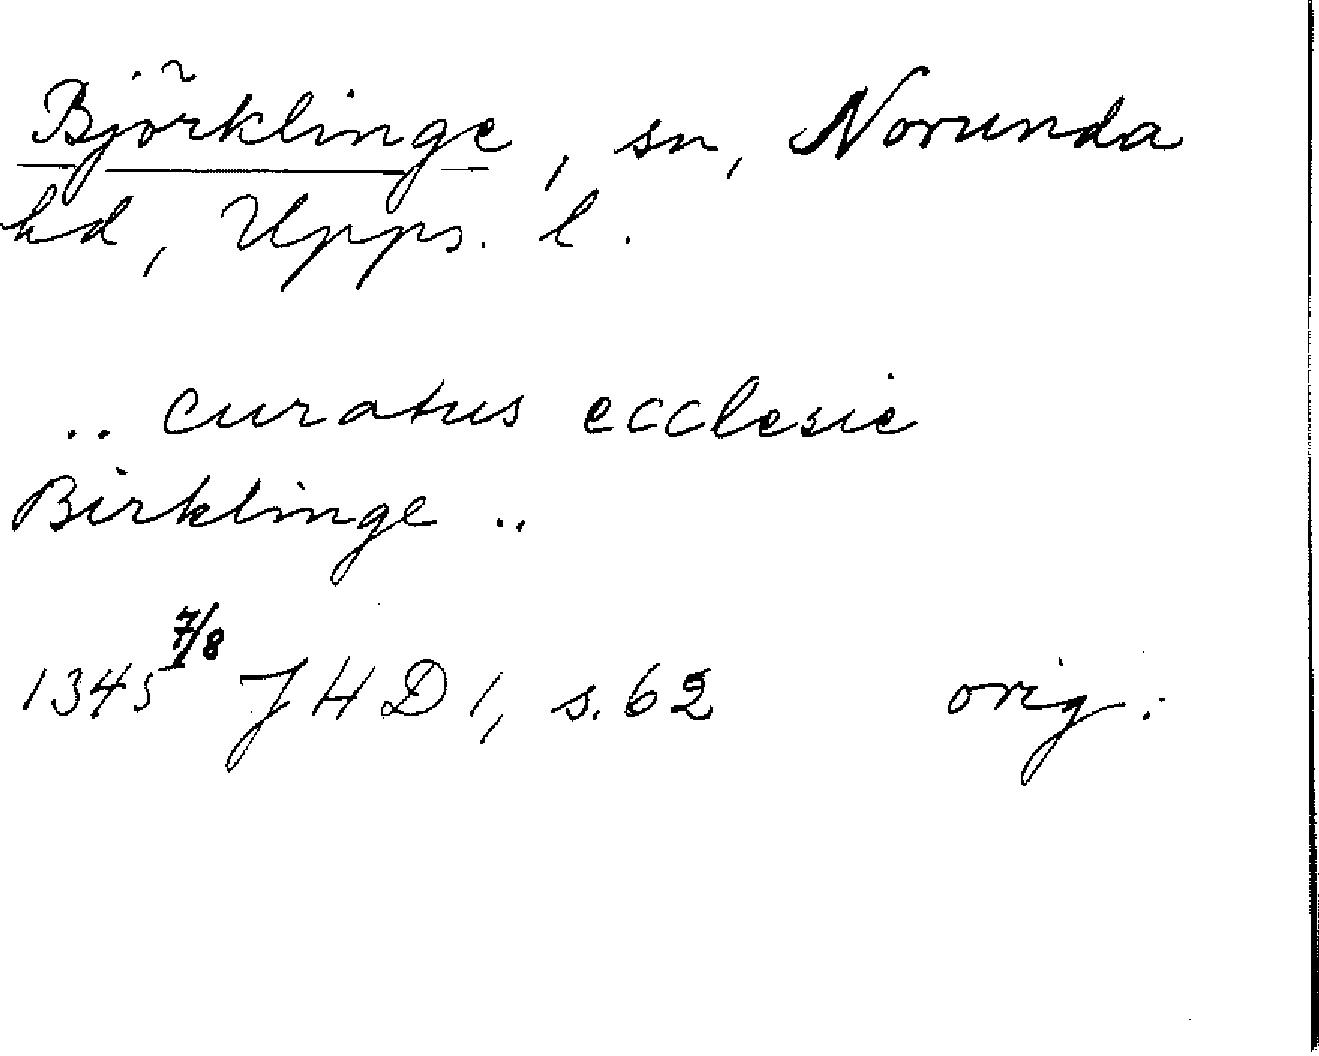 Björklinge, sn, Norunda
hd, Upps. l.
.. curatus ecclesie
Birklinge ..
1345 7/8 JHD 1, s. 62 orig.